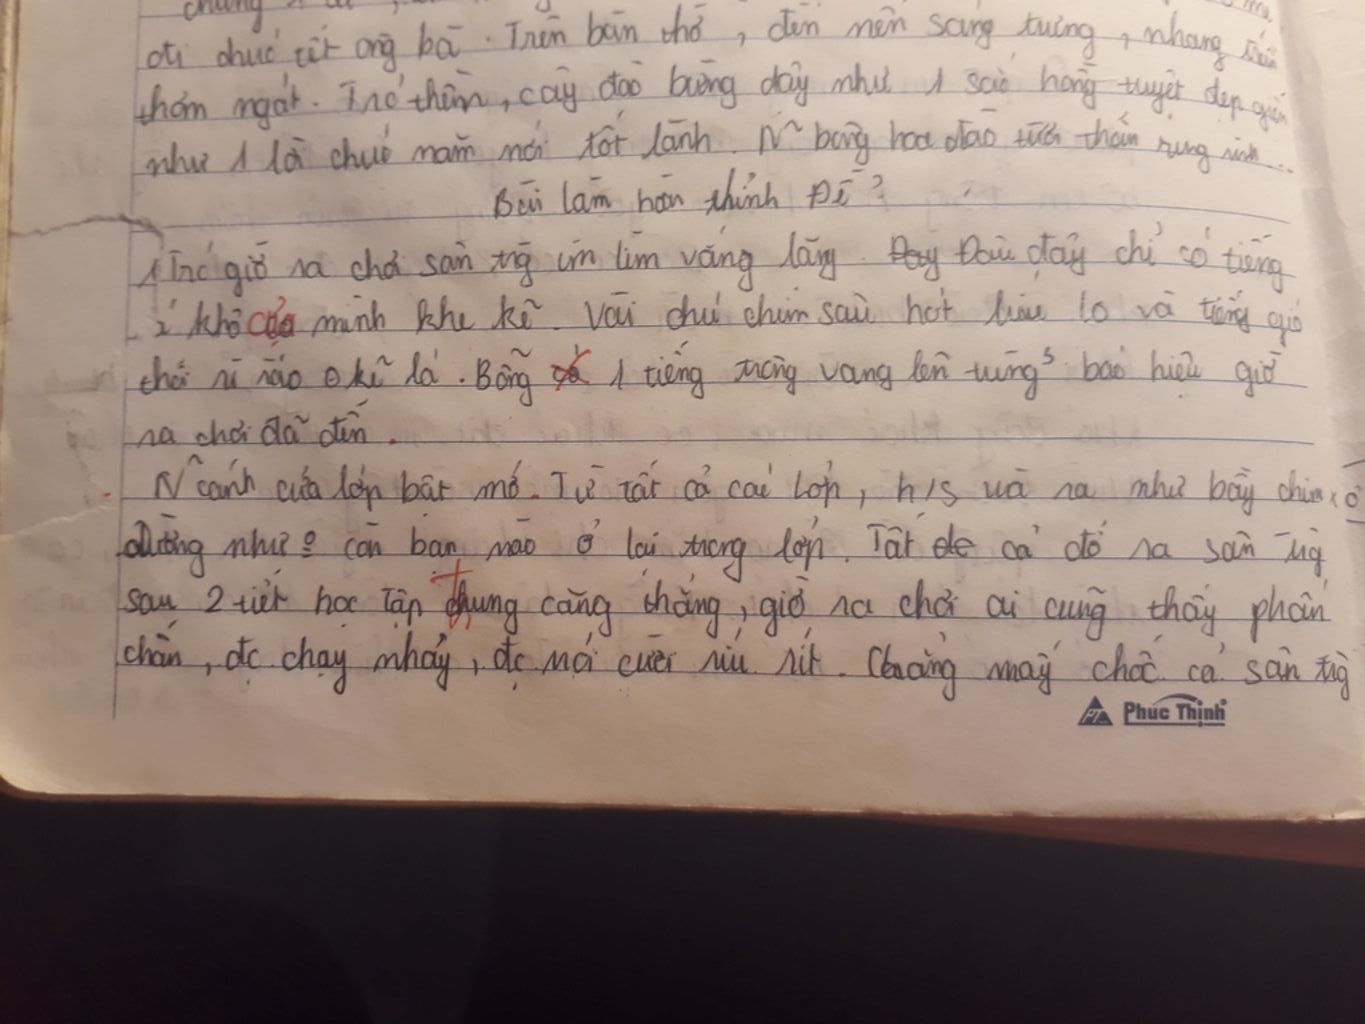 chúng
đi chúc tết ông bà. Trên bàn thờ, đèn nến sáng trưng, nhang
thơm ngát. Trc thềm, cây đào bừng dậy như 1 sắc hồng tuyệt đẹp
như 1 lời chúc năm mới tốt lành. N~ bông hoa đào tươi thắm rung rinh...
Bài làm hoàn thỉnh Đề 2
1 Trc giờ ra chơi sân trg im lìm vắng lặng. Đây Đâu đây chỉ có tiếng
khô của mình khe kẽ. Vài chú chim sâu hót líu lo và tiếng gió
thổi rì rào o kẽ lá. Bỗng 1 tiếng trống vang lên tùng³ báo hiệu giờ
ra chơi đã đến.
N~ cánh cửa lớp bật mở. Từ tất cả các lớp, h/s ùa ra như bầy chim x ổ
dường như o còn bạn nào ở lại trong lớp. Tất de cả đổ ra sân trg
sau 2 tiết học tập chung căng thẳng, giờ ra chơi ai cũng thấy phấn
chấn, đc chạy nhảy, đc nói cười ríu rít. Chẳng mấy chốc cả sân trg
PT Phuc Thinh